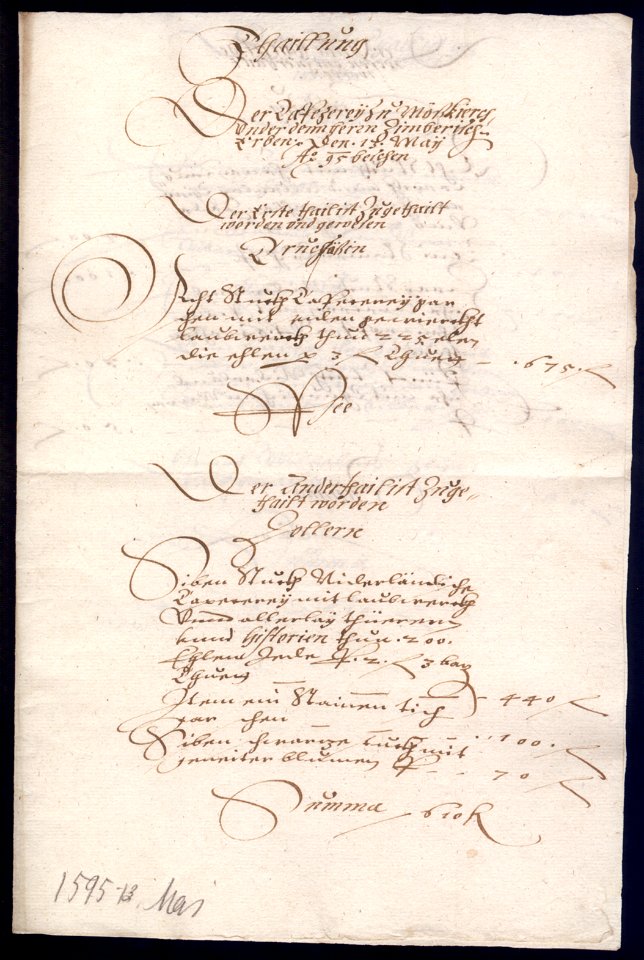 Thaillung
Der Tapezerey Zu Mösskirch
Under den herren Zimberisch-
Erben. Den. 13. May
Ao 95 beschen
Der Erste thail ist Zugethailt
worden und gewesen
Druchsässen
Acht Stuckh Tapezerey
mit
laubwerckh thun 225 elen
die ehlen p 3 fl Thuen - . 675. fl
See
Der Ander thail ist Zuge-
thailt worden
Zollern
Siben Stuckh Niderländische
Tapezerey mit laubwerckh
Unnd allerlay thüeren
unnd Historien thun. 200.
Ehlen Jede p. 2. fl 3 baz
Thuen - 440 fl
Item ein Stainen tisch
100. fl
Siben schwarze tuch mit
blumen p - 70 fl
Summa 610 fl
1595 13. Mai